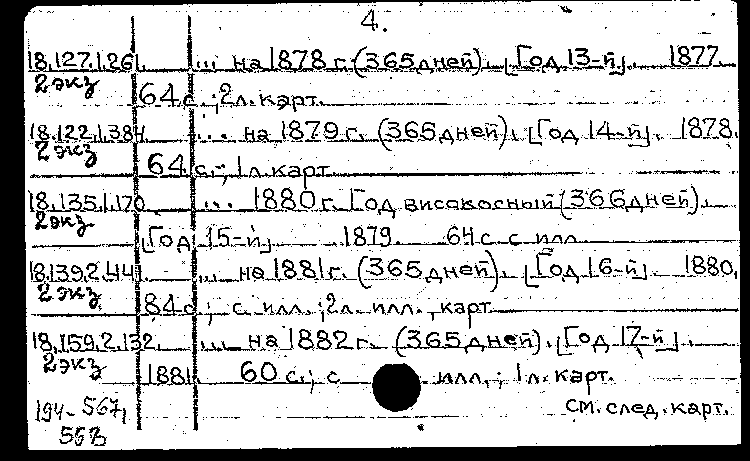 4.
18.127.1.26 ... на 1878 г. (365 дней). [Год 13-й]. 1877.
2 экз
64 с.; 2 л. карт.
18.122.1.384 ... на 1879 г. (365 дней). [Год 14-й]. 1878.
2 экз
64 с.; 1 л. карт.
18.135.1.170 ... 1880 г. Год високосный (366 дней).
2 экз
[Год 15-й]. 1879. 64 с. с илл.
18.139.2.441 ... на 1881 г. (365 дней). [Год 16-й]. 1880.
2 экз
84 с.; с. илл.; 2 л. илл., карт.
18.159.2.132 ... на 1882 г. (365 дней). [Год 17-й].
2 экз
1881. 60 с.; с илл.; 1 л. карт.
194-567, см. след. карт.